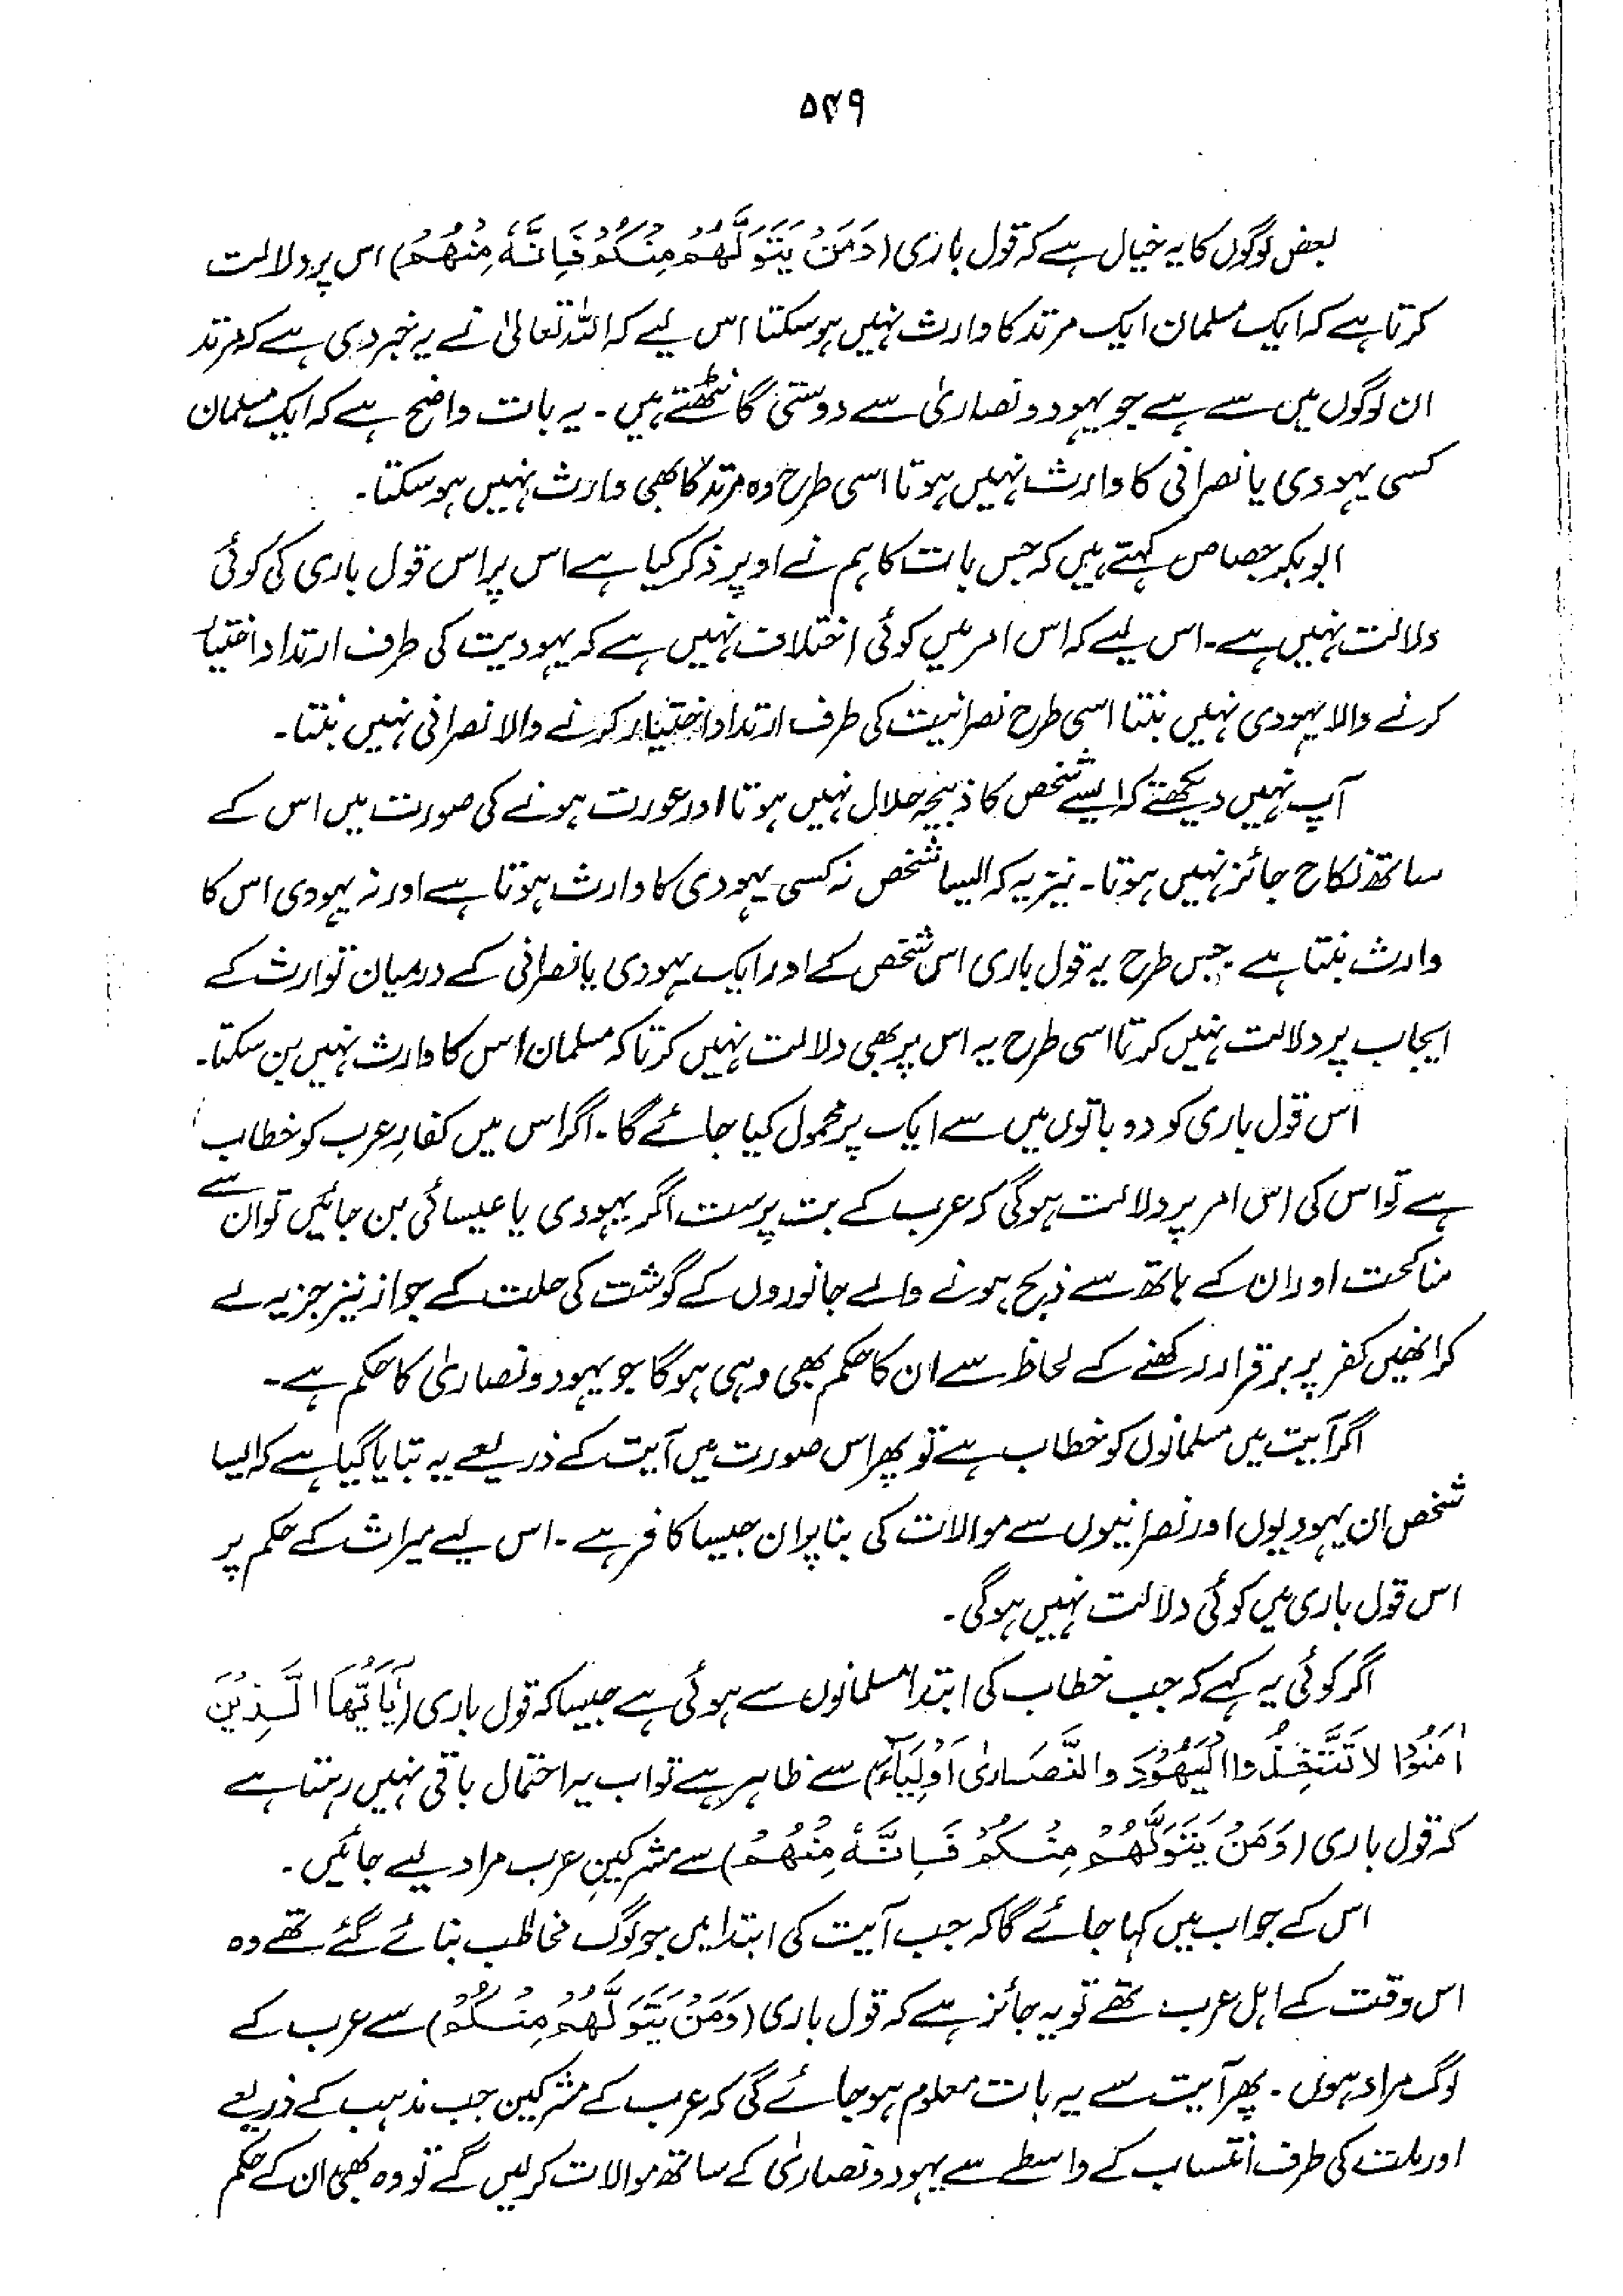 ۵۴۹
بعض لوگوں کا یہ خیال ہے کہ قول باری (وَمَنْ يَتَوَلَّهُمْ مِنْكُمْ فَاِنَّهٗ مِنْهُمْ) اس پر دلالت
کرتا ہے کہ ایک مسلمان ایک مرتد کا وارث نہیں ہو سکتا اس لیے کہ اللہ تعالیٰ نے یہ خبر دی ہے کہ مرتد
ان لوگوں میں سے ہے جو یہود و نصاریٰ سے دوستی گانٹھتے ہیں ۔ یہ بات واضح ہے کہ ایک مسلمان
کسی یہودی یا نصرانی کا وارث نہیں ہوتا اسی طرح وہ مرتد کا بھی وارث نہیں ہو سکتا ۔
ابوبکر جصاص کہتے ہیں کہ جس بات کا ہم نے اوپر ذکر کیا ہے اس پر اس قول باری کی کوئی
دلالت نہیں ہے ۔ اس لیے کہ اس امر میں کوئی اختلاف نہیں ہے کہ یہودیت کی طرف ارتداد اختیار
کرنے والا یہودی نہیں بنتا اسی طرح نصرانیت کی طرف ارتداد اختیار کرنے والا نصرانی نہیں بنتا ۔
آپ نہیں دیکھتے کہ ایسے شخص کا ذبیحہ حلال نہیں ہوتا اور عورت ہونے کی صورت میں اس کے
ساتھ نکاح جائز نہیں ہوتا ۔ نیز یہ کہ ایسا شخص نہ کسی یہودی کا وارث ہوتا ہے اور نہ یہودی اس کا
وارث بنتا ہے ۔ جس طرح یہ قول باری اس شخص کے اور ایک یہودی یا نصرانی کے درمیان توارث کے
ایجاب پر دلالت نہیں کرتا اسی طرح یہ اس پر بھی دلالت نہیں کرتا کہ مسلمان اس کا وارث نہیں بن سکتا ۔
اس قول باری کو دو باتوں میں سے ایک پر محمول کیا جائے گا ۔ اگر اس میں کفارِ عرب کو خطاب
ہے تو اس کی اس امر پر دلالت ہوگی کہ عرب کے بت پرست اگر یہودی یا عیسائی بن جائیں تو ان سے
مناکحت اور ان کے ہاتھ سے ذبح ہونے والے جانوروں کے گوشت کی حلت کے جواز نیز جزیہ لے
کر انھیں کفر پر برقرار رکھنے کے لحاظ سے ان کا حکم بھی وہی ہوگا جو یہود و نصاریٰ کا حکم ہے ۔
اگر آیت میں مسلمانوں کو خطاب ہے تو پھر اس صورت میں آیت کے ذریعے یہ بتایا گیا ہے کہ ایسا
شخص ان یہودیوں اور نصرانیوں سے موالات کی بنا پر ان جیسا کافر ہے ۔ اس لیے میراث کے حکم پر
اس قول باری میں کوئی دلالت نہیں ہوگی ۔
اگر کوئی یہ کہے کہ جب خطاب کی ابتدا مسلمانوں سے ہوئی ہے جیسا کہ قول باری (يٰاَيُّهَا الَّذِيْنَ
اٰمَنُوْا لَا تَتَّخِذُوا الْيَهُوْدَ وَالنَّصَارٰى اَوْلِيَآءَ) سے ظاہر ہے تو اب یہ احتمال باقی نہیں رہتا ہے
کہ قول باری (وَمَنْ يَتَوَلَّهُمْ مِنْكُمْ فَاِنَّهٗ مِنْهُمْ) سے مشرکینِ عرب مراد لیے جائیں ۔
اس کے جواب میں کہا جائے گا کہ جب آیت کی ابتدا میں جو لوگ مخاطب بنائے گئے تھے وہ
اس وقت کے اہل عرب تھے تو یہ جائز ہے کہ قول باری (وَمَنْ يَتَوَلَّهُمْ مِنْكُمْ) سے عرب کے
لوگ مراد ہوں ۔ پھر آیت سے یہ بات معلوم ہو جائے گی کہ عرب کے مشرکین جب مذہب کے ذریعے
اور ملت کی طرف انتساب کے واسطے سے یہود و نصاریٰ کے ساتھ موالات کر لیں گے تو وہ بھی ان کے حکم